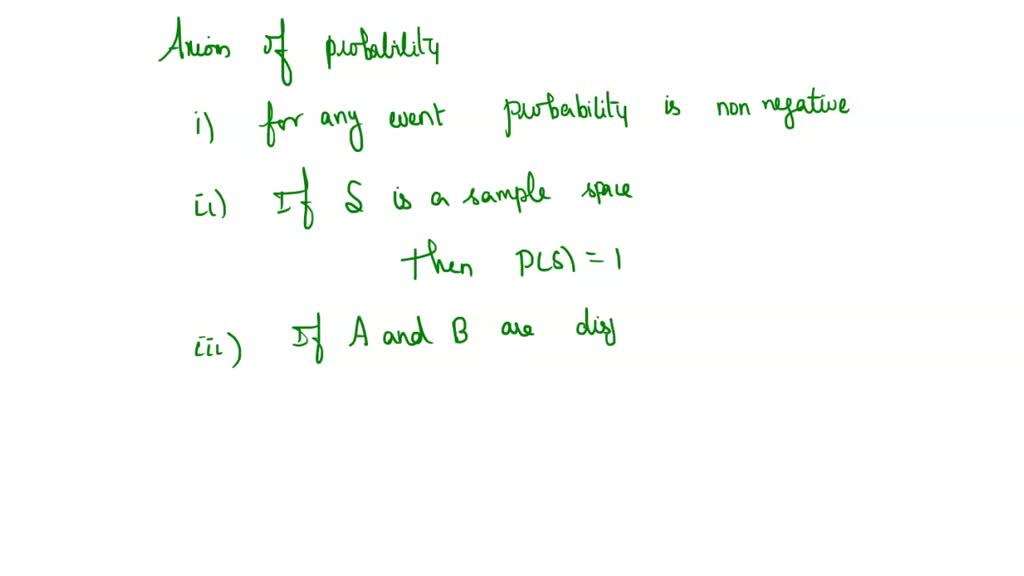 Axioms of probability
i) for any event probability is non negative
ii) If S is a sample space
then P(S) = 1
iii) If A and B are disj